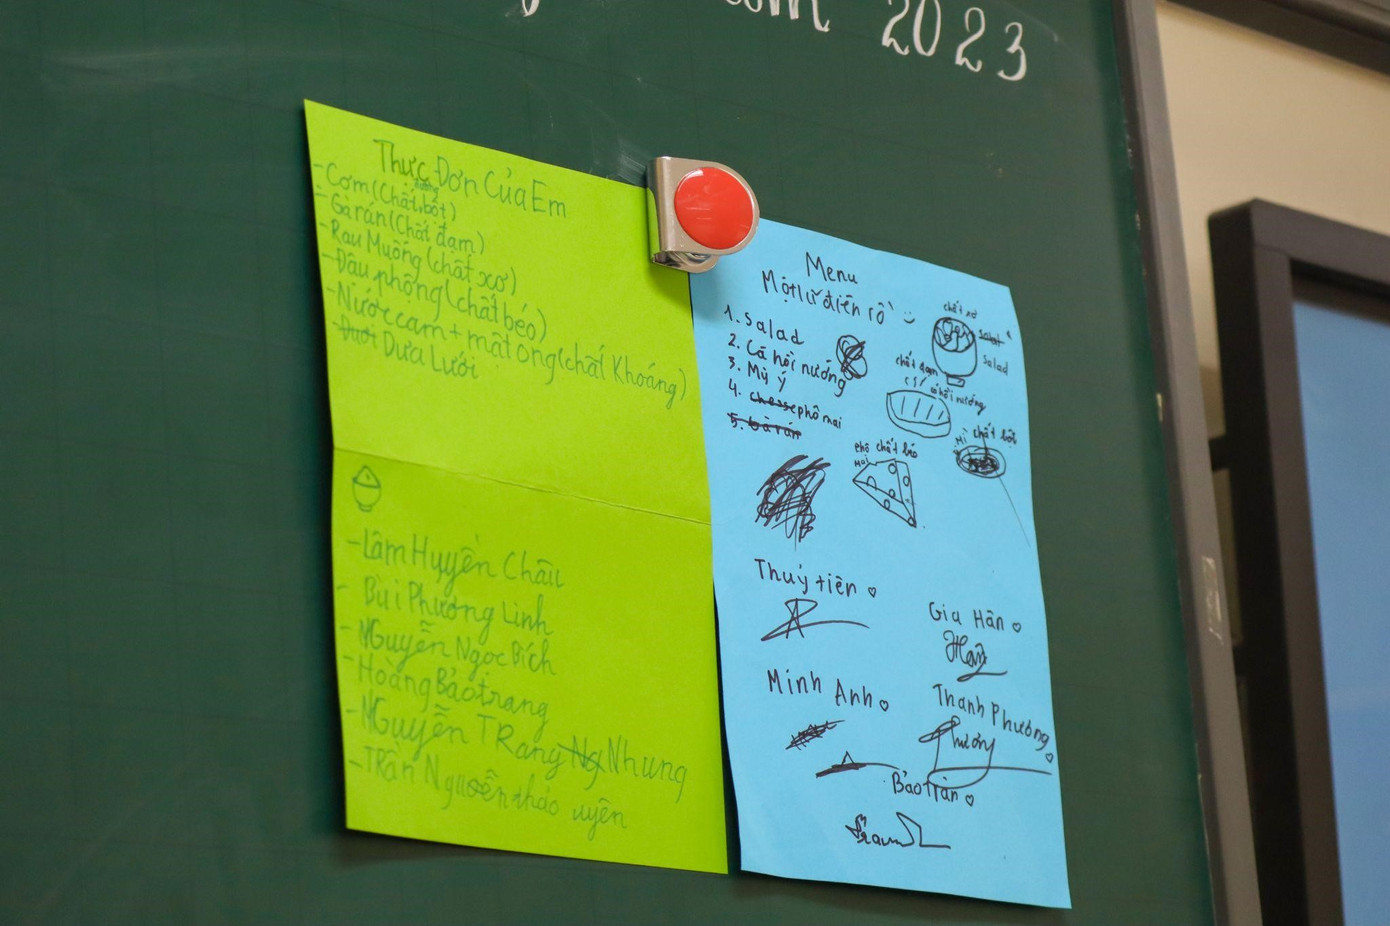 2023
Thực Đơn Của Em
- Cơm (Chất bột)
đường
- Gà rán (Chất đạm)
- Rau Muống (chất xơ)
- Đậu phộng (chất béo)
- Nước cam + mật ong (chất Khoáng)
- Dưa Lưới
- Lâm Huyền Châu
- Bùi Phương Linh
- Nguyễn Ngọc Bích
- Hoàng Bảo trang
- Nguyễn TRang Nhung
- TRần Nguyễn thảo uyên
Menu
Một lũ điên rồ
1. salad
2. Cá hồi nướng
3. Mỳ ý
4. phô mai
5. gà rán
chất xơ
salad
chất đạm
cá hồi nướng
chất bột
Mì
chất béo
Thuỷ tiên ♡
Gia Hân ♡
Hân
Minh Anh ♡
Thanh Phương ♡
Phương
Bảo Trân ♡